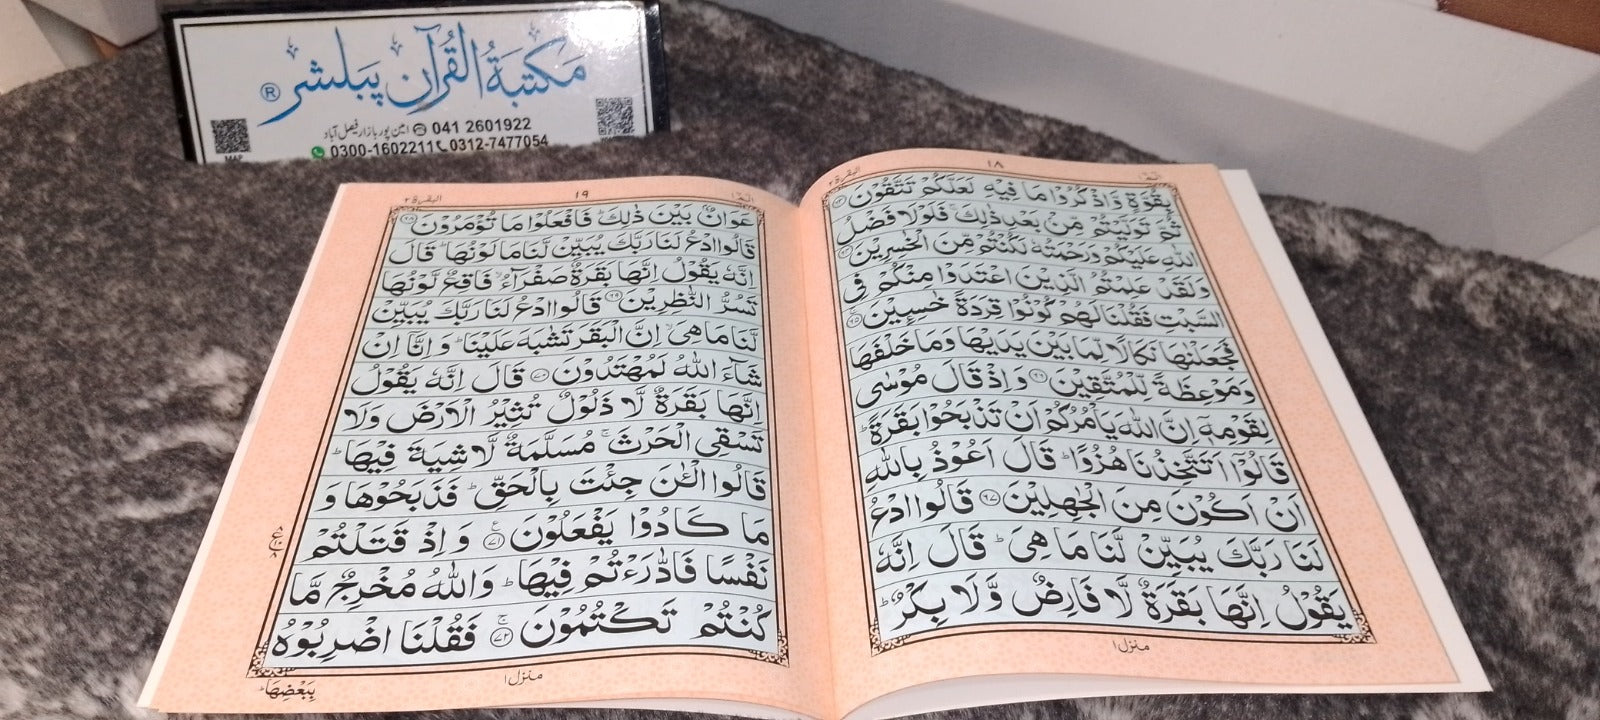 مکتبۃ القرآن پبلشر ®
امین پور بازار فیصل آباد ☎ 041 2601922
0300-1602211 0312-7477054
MAP
البقرة ٢
١٨
الٓمّٓ ١
بِقُوَّةٍ وَّاذْكُرُوْا مَا فِيْهِ لَعَلَّكُمْ تَتَّقُوْنَ ﴿٦٣﴾
ثُمَّ تَوَلَّيْتُمْ مِّنْۢ بَعْدِ ذٰلِكَ ۚ فَلَوْلَا فَضْلُ
اللّٰهِ عَلَيْكُمْ وَرَحْمَتُهٗ لَكُنْتُمْ مِّنَ الْخٰسِرِيْنَ ﴿٦٤﴾
وَلَقَدْ عَلِمْتُمُ الَّذِيْنَ اعْتَدَوْا مِنْكُمْ فِى
السَّبْتِ فَقُلْنَا لَهُمْ كُوْنُوْا قِرَدَةً خٰسِـِٕيْنَ ﴿٦٥﴾
فَجَعَلْنٰهَا نَكَالًا لِّمَا بَيْنَ يَدَيْهَا وَمَا خَلْفَهَا
وَمَوْعِظَةً لِّلْمُتَّقِيْنَ ﴿٦٦﴾ وَاِذْ قَالَ مُوْسٰى
لِقَوْمِهٖٓ اِنَّ اللّٰهَ يَاْمُرُكُمْ اَنْ تَذْبَحُوْا بَقَرَةً ؕ
قَالُوْٓا اَتَتَّخِذُنَا هُزُوًا ؕ قَالَ اَعُوْذُ بِاللّٰهِ
اَنْ اَكُوْنَ مِنَ الْجٰهِلِيْنَ ﴿٦٧﴾ قَالُوا ادْعُ
لَنَا رَبَّكَ يُبَيِّنْ لَّنَا مَا هِىَ ؕ قَالَ اِنَّهٗ
يَقُوْلُ اِنَّهَا بَقَرَةٌ لَّا فَارِضٌ وَّلَا بِكْرٌ ؕ
منزل ١
البقرة ٢
١٩
الٓمّٓ ١
عَوَانٌۢ بَيْنَ ذٰلِكَ ؕ فَافْعَلُوْا مَا تُؤْمَرُوْنَ ﴿٦٨﴾
قَالُوا ادْعُ لَنَا رَبَّكَ يُبَيِّنْ لَّنَا مَا لَوْنُهَا ؕ قَالَ
اِنَّهٗ يَقُوْلُ اِنَّهَا بَقَرَةٌ صَفْرَآءُ ۙ فَاقِعٌ لَّوْنُهَا
تَسُرُّ النّٰظِرِيْنَ ﴿٦٩﴾ قَالُوا ادْعُ لَنَا رَبَّكَ يُبَيِّنْ
لَّنَا مَا هِىَ ۙ اِنَّ الْبَقَرَ تَشٰبَهَ عَلَيْنَا ؕ وَاِنَّآ اِنْ
شَآءَ اللّٰهُ لَمُهْتَدُوْنَ ﴿٧٠﴾ قَالَ اِنَّهٗ يَقُوْلُ
اِنَّهَا بَقَرَةٌ لَّا ذَلُوْلٌ تُثِيْرُ الْاَرْضَ وَلَا
تَسْقِى الْحَرْثَ ۚ مُسَلَّمَةٌ لَّا شِيَةَ فِيْهَا ؕ
قَالُوا الْـٰٔنَ جِئْتَ بِالْحَقِّ ؕ فَذَبَحُوْهَا وَ
مَا كَادُوْا يَفْعَلُوْنَ ﴿٧١﴾ وَاِذْ قَتَلْتُمْ
نَفْسًا فَادّٰرَءْتُمْ فِيْهَا ؕ وَاللّٰهُ مُخْرِجٌ مَّا
كُنْتُمْ تَكْتُمُوْنَ ﴿٧٢﴾ فَقُلْنَا اضْرِبُوْهُ
منزل ١
بِبَعْضِهَا ؕ